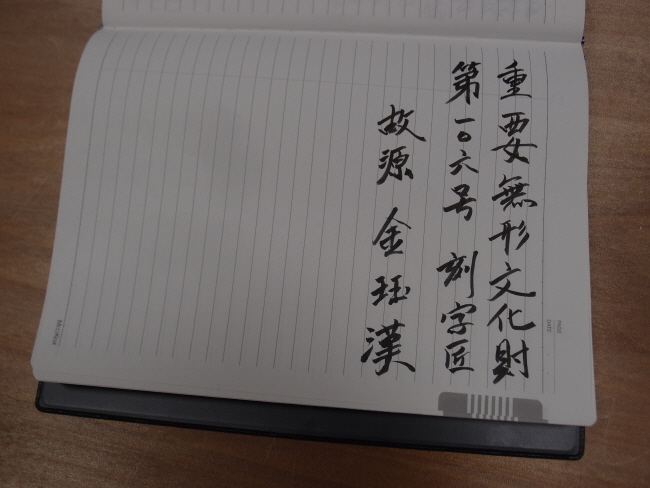 重要無形文化財
第一〇六号 刻字匠
故源 金珏漢
PAGE
DATE